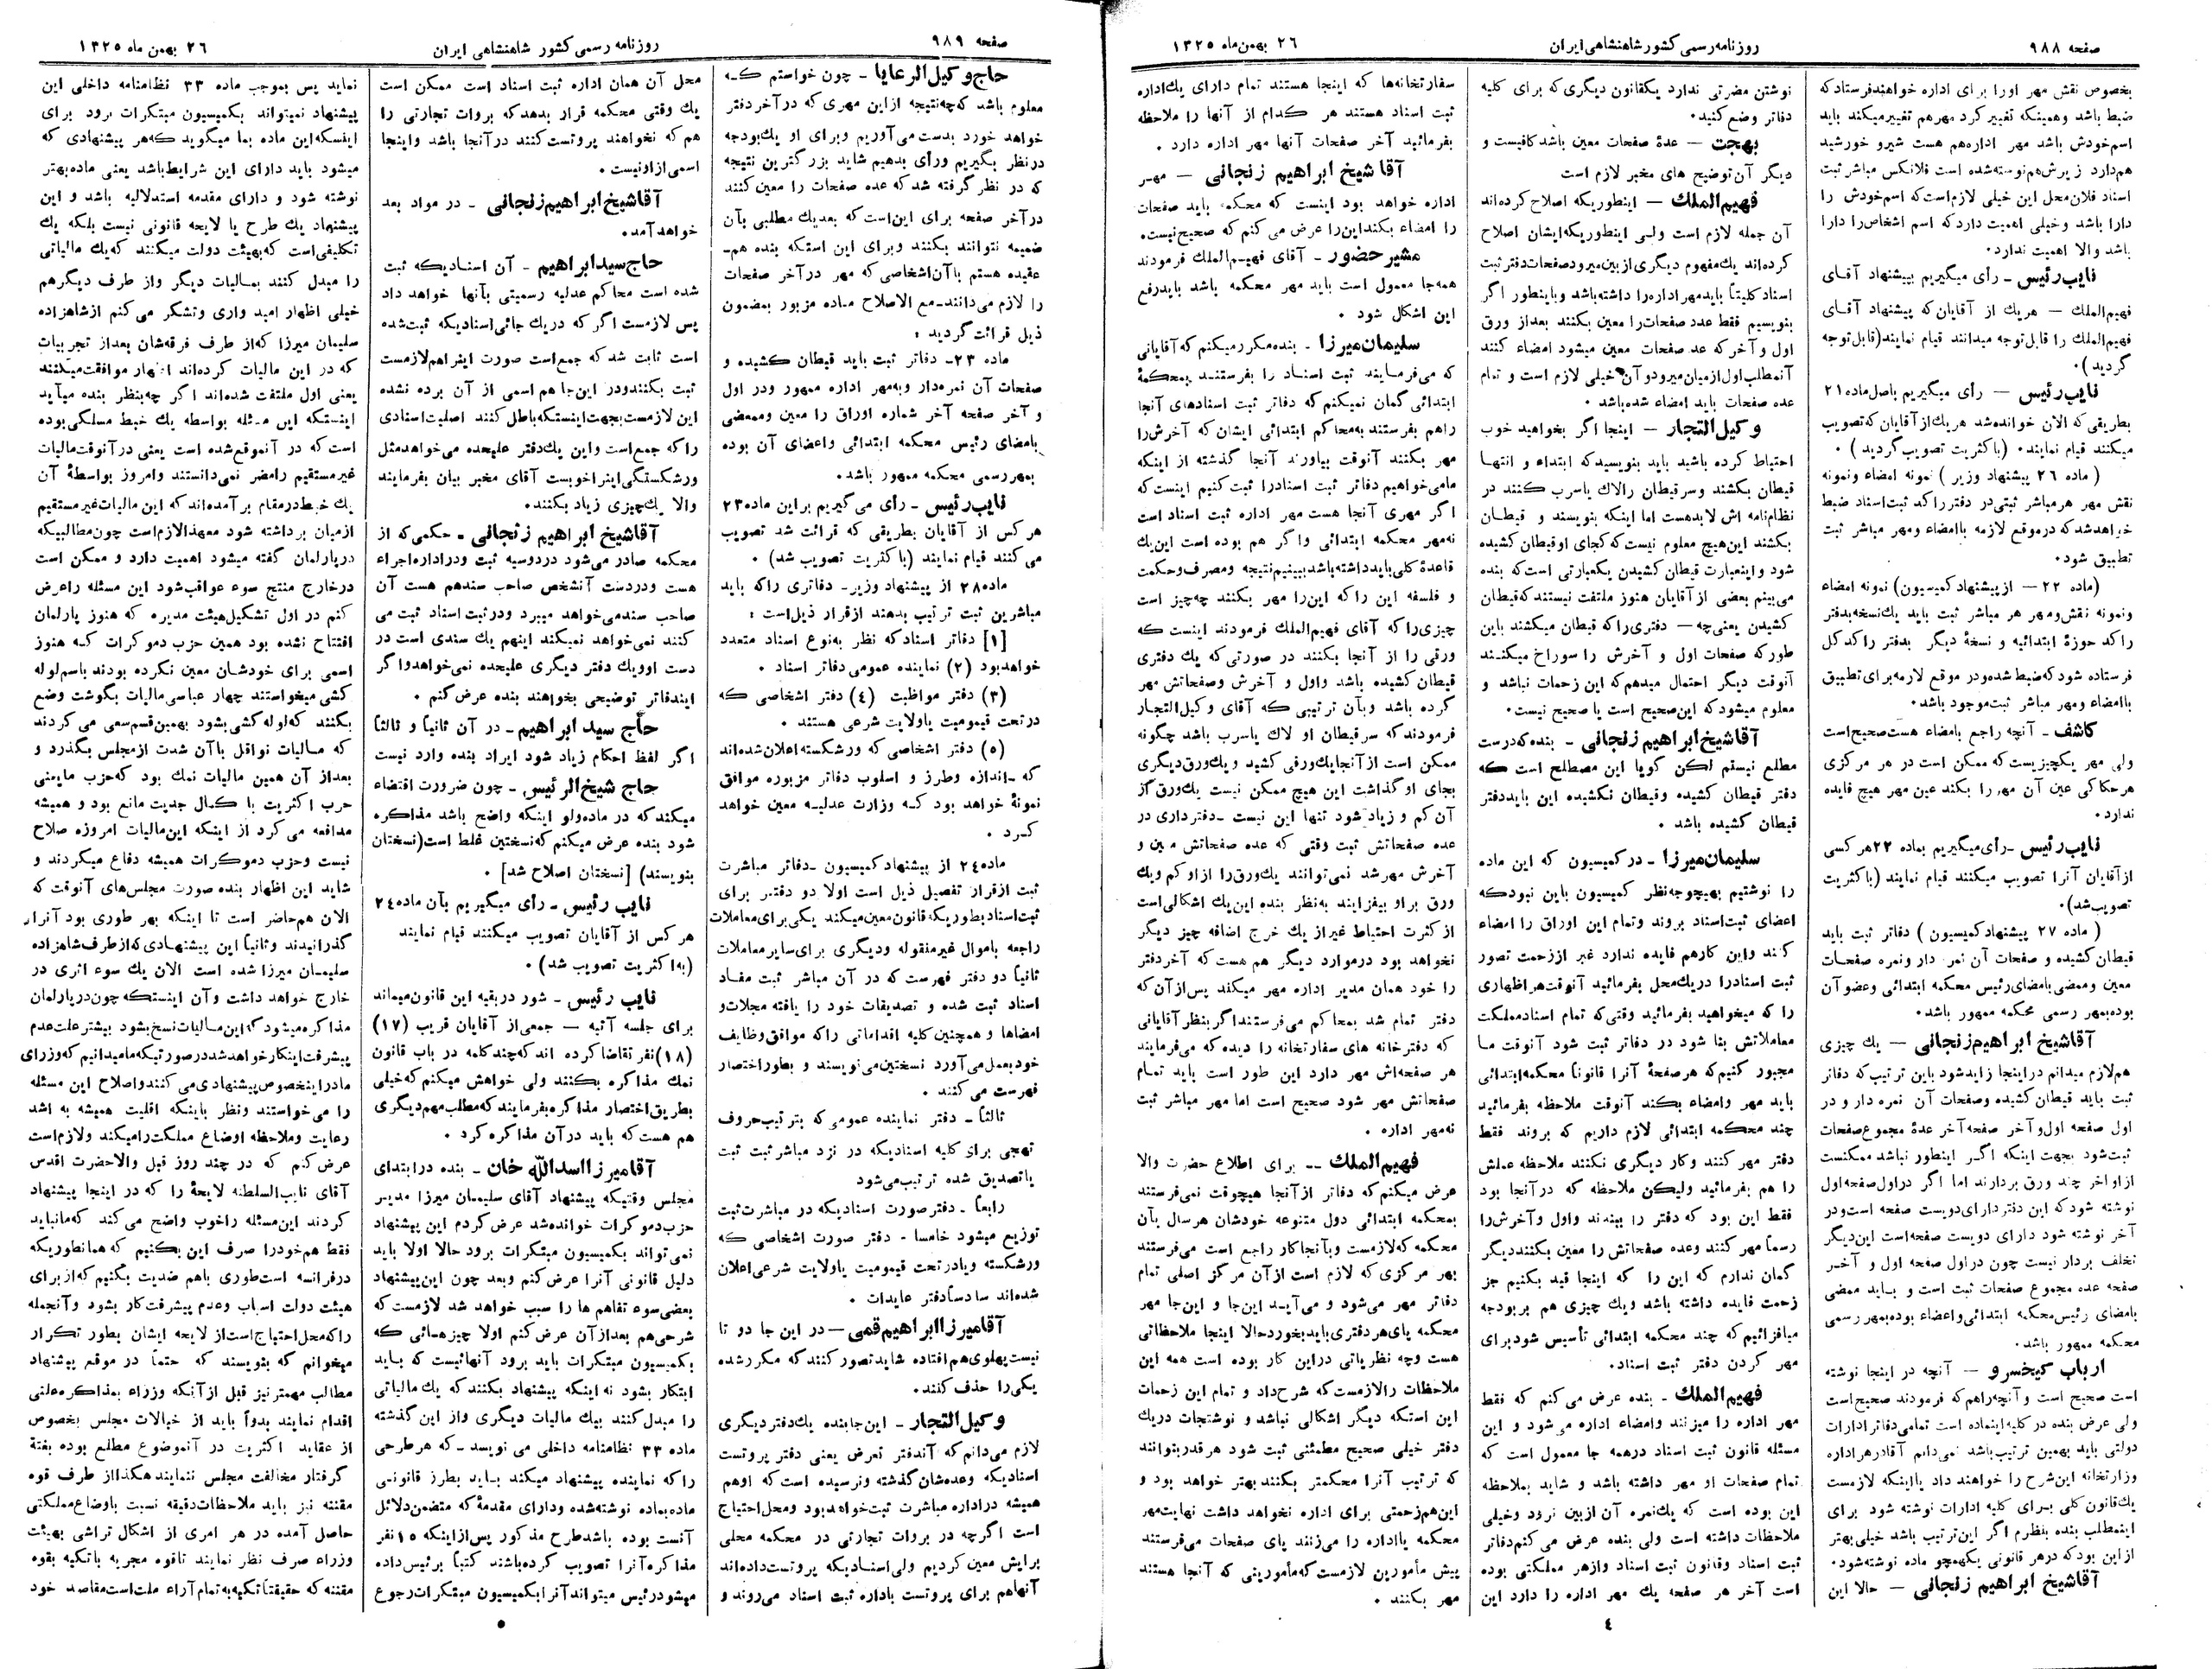 صفحه ۹۸۸
روزنامه رسمی کشور شاهنشاهی ایران
۲۶ بهمن ماه ۱۳۲۵
بخصوص نقش مهر اورا برای اداره خواهند فرستاد که
ضبط باشد وهمینکه تغییر کرد مهرهم تغییر میکند باید
اسم خودش باشد مهر اداره هم هست شیرو خورشید
هم دارد زیرش هم نوشته شده است فلانکس مباشر ثبت
اسناد فلان محل این خیلی لازم است که اسم خودش را
دارا باشد وخیلی اهمیت دارد که اسم اشخاص را دارا
باشد والا اهمیت ندارد.
نایب رئیس ـ رأی میگیریم بپیشنهاد آقای
فهیم الملک ـ هریك از آقایان که پیشنهاد آقای
فهیم الملك را قابل توجه میدانند قیام نمایند (قابل توجه
گردید).
نایب رئیس ـ رأی میگیریم باصل ماده ۲۱
بطریقی که الان خوانده شد هریك از آقایان که تصویب
میکنند قیام نمایند. (باکثریت تصویب گردید) .
(ماده ۲۶ پیشنهاد وزیر) نمونه امضاء ونمونه
نقش مهر هرمباشر ثبتی در دفتر راکد ثبت اسناد ضبط
خواهد شد که درموقع لازمه باامضاء ومهر مباشر ثبت
تطبیق شود.
(ماده ۲۲ ـ از پیشنهاد کمیسیون) نمونه امضاء
ونمونه نقش ومهر هر مباشر ثبت باید یك نسخه بدفتر
راکد حوزهٔ ابتدائیه و نسخهٔ دیگر بدفتر راکد کل
فرستاده شود که ضبط شده ودر موقع لازمه برای تطبیق
باامضاء ومهر مباشر ثبت موجود باشد.
کاشف ـ آنچه راجع بامضاء هست صحیح است
ولی مهر یکچیزیست که ممکن است در هر مرکزی
هرحکاکی عین آن مهر را بکند عین مهر هیچ فایده
ندارد.
نایب رئیس ـ رأی میگیریم بماده ۲۲ هر کسی
از آقایان آنرا تصویب میکنند قیام نمایند (باکثریت
تصویب شد).
(ماده ۲۷ پیشنهاد کمیسیون) دفاتر ثبت باید
قیطان کشیده و صفحات آن نمره دار ونمره صفحات
معین وممضی بامضای رئیس محکمه ابتدائی وعضو آن
بوده بمهر رسمی محکمه ممهور باشد.
آقاشیخ ابراهیم زنجانی ـ یك چیزی
هم لازم میدانم در اینجا زاید شود باین ترتیب که دفاتر
ثبت باید قیطان کشیده وصفحات آن نمره دار و در
اول صفحه اول و آخر صفحه آخر عدهٔ مجموع صفحات
ثبت شود بجهت اینکه اگر اینطور نباشد ممکنست
از اواخر چند ورق بردارند اما اگر دراول صفحه اول
نوشته شود که این دفتر دارای دویست صفحه است ودر
آخر نوشته شود دارای دویست صفحه است این دیگر
تخلف بردار نیست چون دراول صفحه اول و آخر
صفحه عده مجموع صفحات ثبت است و باید ممضی
بامضای رئیس محکمه ابتدائی واعضاء بوده بمهر رسمی
محکمه ممهور باشد.
ارباب کیخسرو ـ آنچه در اینجا نوشته
است صحیح است و آنچه راهم که فرمودند صحیح است
ولی عرض بنده در کلیه اینماده است تمامی دفاتر ادارات
دولتی باید بهمین ترتیب باشد نمی دانم آقا در هر اداره
وزارتخانه این شرح را خواهند داد یا اینکه لازمست
یك قانون کلی برای کلیه ادارات نوشته شود برای
اینمطلب بنده بنظرم اگر این ترتیب باشد خیلی بهتر
از این بود که درهر قانونی یکهمچو ماده نوشته شود.
آقاشیخ ابراهیم زنجانی ـ حالا این
نوشتن مضرتی ندارد یکقانون دیگری که برای کلیه
دفاتر وضع کنید.
بهجت ـ عدهٔ صفحات معین باشد کافیست و
دیگر آن توضیح های مخبر لازم است
فهیم الملك ـ اینطوریکه اصلاح کرده اند
آن جمله لازم است ولی اینطوریکه ایشان اصلاح
کرده اند یك مفهوم دیگری از بین میرود صفحات دفتر ثبت
اسناد کلیتاً باید مهر اداره را داشته باشد وباینطور اگر
بنویسیم فقط عدد صفحات را معین بکنند بعد از ورق
اول و آخر که عدد صفحات معین میشود امضاء کنند
آنمطلب اول از میان میرود و آن خیلی لازم است و تمام
عده صفحات باید امضاء شده باشد .
وکیل التجار ـ اینجا اگر بخواهید خوب
احتیاط کرده باشید باید بنویسید که ابتداء و انتها
قیطان بکشند وسر قیطان رالاك یاسرب کنند در
نظام نامه اش لابد هست اما اینکه بنویسند و قیطان
بکشند این هیچ معلوم نیست که کجای او قیطان کشیده
شود و اینعبارت قیطان کشیدن یکعبارتی است که بنده
می بینم بعضی از آقایان هنوز ملتفت نیستند که قیطان
کشیدن یعنی چه ـ دفتری راکه قیطان میکشند باین
طور که صفحات اول و آخرش را سوراخ میکنند
آنوقت دیگر احتمال میدهم که این زحمات نباشد و
معلوم میشود که این صحیح است یا صحیح نیست.
آقاشیخ ابراهیم زنجانی ـ بنده که درست
مطلع نیستم لکن گویا این مصطلح است که
دفتر قیطان کشیده وقیطان نکشیده این باید دفتر
قیطان کشیده باشد .
سلیمان میرزا ـ در کمیسیون که این ماده
را نوشتیم بهیچوجه نظر کمیسیون باین نبود که
اعضای ثبت اسناد بروند وتمام این اوراق را امضاء
کنند واین کارهم فایده ندارد غیر از زحمت تصور
ثبت اسنادرا دریك محل بفرمائید آنوقت هر اظهاری
را که میخواهید بفرمائید وقتی که تمام اسناد مملکت
معاملاتش بنا شود در دفاتر ثبت شود آنوقت ما
مجبور کنیم که هر صفحهٔ آنرا قانوناً محکمه ابتدائی
باید مهر وامضاء بکند آنوقت ملاحظه بفرمائید
چند محکمه ابتدائی لازم داریم که بروند فقط
دفتر مهر کنند وکار دیگری نکنند ملاحظه عملش
را هم بفرمائید ولیکن ملاحظه که در آنجا بود
فقط این بود که دفتر را ببینند واول وآخرش را
رسماً مهر کنند وعده صفحاتش را معین بکنند دیگر
گمان ندارم که این را که اینجا قید بکنیم جز
زحمت فایده داشته باشد ویك چیزی هم بر بودجه
میافزائیم که چند محکمه ابتدائی تأسیس شود برای
مهر کردن دفتر ثبت اسناد.
فهیم الملك ـ بنده عرض می کنم که فقط
مهر اداره را میزنند وامضاء اداره می شود و این
مسئله قانون ثبت اسناد درهمه جا معمول است که
تمام صفحات او مهر داشته باشد و شاید بملاحظه
این بوده است که یك نمره آن از بین نرود وخیلی
ملاحظات داشته است ولی بنده عرض می کنم دفاتر
ثبت اسناد وقانون ثبت اسناد وازهر مملکتی بوده
است آخر هر صفحه یك مهر اداره را دارد این
سفارتخانه ها که اینجا هستند تمام دارای یك اداره
ثبت اسناد هستند هر کدام از آنها را ملاحظه
بفرمائید آخر صفحات آنها مهر اداره دارد .
آقا شیخ ابراهیم زنجانی ـ مهر
اداره خواهد بود اینست که محکمه باید صفحات
را امضاء بکند این را عرض می کنم که صحیح نیست.
مشیر حضور ـ آقای فهیم الملك فرمودند
همه جا معمول است باید مهر محکمه باشد باید رفع
این اشکال شود .
سلیمان میرزا ـ بنده مکرر میکنم که آقایانی
که می فرمایند ثبت اسناد را بفرستند بمحکمهٔ
ابتدائی گمان نمیکنم که دفاتر ثبت اسنادهای آنجا
راهم بفرستند به محاکم ابتدائی ایشان که آخرش را
مهر بکنند آنوقت بیاورند آنجا گذشته از اینکه
مامی خواهیم دفاتر ثبت اسنادرا ثبت کنیم اینست که
اگر مهری آنجا هست مهر اداره ثبت اسناد است
نه مهر محکمه ابتدائی واگر هم بوده است این یك
قاعدهٔ کلی باید داشته باشد ببینیم نتیجه ومصرف وحکمت
و فلسفه این راکه این را مهر بکنند چه چیز است
چیزی را که آقای فهیم الملك فرمودند اینست که
ورقی را از آنجا بکنند در صورتی که یك دفتری
قیطان کشیده باشد واول و آخرش وصفحاتش مهر
کرده باشد وبآن ترتیبی که آقای وکیل التجار
فرمودند که سر قیطان او لاك یاسرب باشد چگونه
ممکن است از آنجا یك ورقی کشید ویك ورق دیگری
بجای او گذاشت این هیچ ممکن نیست یك ورق از
آن کم و زیاد شود تنها این نیست ـ دفترداری در
عده صفحاتش ثبت وقتی که عده صفحاتش معین و
آخرش مهر شد نمی توانند یك ورق را از او کم ویك
ورق براو بیفزایند به نظر بنده این یك اشکالی است
از کثرت احتیاط غیر از یك خرج اضافه چیز دیگر
نخواهد بود درموارد دیگر هم هست که آخر دفتر
را خود همان مدیر اداره مهر میکند پس از آن که
دفتر تمام شد بمحاکم می فرستند اگر بنظر آقایانی
که دفترخانه های سفارتخانه را دیده که می فرمایند
هر صفحه اش مهر دارد این طور است باید تمام
صفحاتش مهر شود صحیح است اما مهر مباشر ثبت
نه مهر اداره .
فهیم الملك ـ برای اطلاع حضرت والا
عرض میکنم که دفاتر از آنجا هیچوقت نمی فرستند
بمحکمه ابتدائی دول متنوعه خودشان هرسال بآن
محکمه که لازمست وبآنجا کار راجع است می فرستند
بهر مرکزی که لازم است از آن مرکز اصلی تمام
دفاتر مهر می شود و می آید این جا و این جا مهر
محکمه پای هر دفتری باید بخورد حالا اینجا ملاحظاتی
هست وچه نظریاتی دراین کار بوده است همه این
ملاحظات رالازمست که شرح داد و تمام این زحمات
این استکه دیگر اشکالی نباشد و نوشتجات دریك
دفتر خیلی صحیح مطمئنی ثبت شود هر قدر بتوانند
که ترتیب آنرا محکمتر بکنند بهتر خواهد بود و
این هم زحمتی برای اداره نخواهد داشت نهایت مهر
محکمه یااداره را می زنند پای صفحات می فرستند
پیش مأمورین لازمست که مأمورینی که آنجا هستند
مهر بکنند .
٤
صفحه ۹۸۹
روزنامه رسمی کشور شاهنشاهی ایران
۲۶ بهمن ماه ۱۳۲۵
حاج وکیل الرعایا ـ چون خواستم که
معلوم باشد که چه نتیجه از این مهری که در آخر دفتر
خواهد خورد بدست می آوریم وبرای او یك بودجه
درنظر بگیریم ورأی بدهیم شاید بزرگترین نتیجه
که در نظر گرفته شد که عده صفحات را معین کنند
در آخر صفحه برای این است که بعد یك مطلبی بآن
ضمیمه نتوانند بکنند وبرای این استکه بنده هم
عقیده هستم باآن اشخاصی که مهر درآخر صفحات
را لازم می دانند ـ مع الاصلاح ماده مزبور بمضمون
ذیل قرائت گردید :
ماده ۲۳ـ دفاتر ثبت باید قیطان کشیده و
صفحات آن نمره دار وبمهر اداره ممهور ودر اول
و آخر صفحه آخر شماره اوراق را معین وممضی
بامضای رئیس محکمه ابتدائی واعضای آن بوده
بمهر رسمی محکمه ممهور باشد.
نایب رئیس ـ رأی می گیریم براین ماده ۲۳
هرکس از آقایان بطریقی که قرائت شد تصویب
می کنند قیام نمایند (باکثریت تصویب شد) .
ماده ۲۸ از پیشنهاد وزیر ـ دفاتری راکه باید
مباشرین ثبت ترتیب بدهند از قرار ذیل است :
[۱] دفاتر اسناد که نظر به نوع اسناد متعدد
خواهد بود (۲) نماینده عمومی دفاتر اسناد .
(۳) دفتر مواظبت (٤) دفتر اشخاصی که
در تحت قیمومیت یا ولایت شرعی هستند .
(۵) دفتر اشخاصی که ورشکسته اعلان شده اند
که ـ اندازه وطرز و اسلوب دفاتر مزبوره موافق
نمونهٔ خواهد بود که وزارت عدلیه معین خواهد
کرد .
ماده ۲٤ از پیشنهاد کمیسیون ـ دفاتر مباشرت
ثبت از قرار تفصیل ذیل است اولا دو دفتر برای
ثبت اسناد بطوریکه قانون معین میکند یکی برای معاملات
راجعه باموال غیر منقوله ودیگری برای سایر معاملات
ثانیاً دو دفتر فهرست که در آن مباشر ثبت مفاد
اسناد ثبت شده و تصدیقات خود را یافته مجلات و
امضاها و همچنین کلیه اقداماتی راکه موافق وظایف
خود بعمل می آورد نسختین می نویسند و بطور اختصار
فهرست می کنند .
ثالثاً ـ دفتر نماینده عمومی که بترتیب حروف
تهجی برای کلیه اسنادیکه در نزد مباشر ثبت ثبت
یا تصدیق شده ترتیب می شود
رابعاً ـ دفتر صورت اسنادیکه در مباشرت ثبت
توزیع میشود خامسا ـ دفتر صورت اشخاصی که
ورشکسته ویادر تحت قیمومیت یاولایت شرعی اعلان
شده اند سادساً دفتر عایدات .
آقا میرزا ابراهیم قمی ـ در این جا دو تا
نیست پهلوی هم افتاده شاید تصور کنند که مکرر شده
یکی را حذف کنند.
وکیل التجار ـ این جا بنده یك دفتر دیگری
لازم می دانم که آندفتر تعرض یعنی دفتر پروتست
اسنادیکه وعده شان گذشته ونرسیده است که اوهم
همیشه در اداره مباشرت ثبت خواهد بود ومحل احتیاج
است اگرچه در بروات تجارتی در محکمه محلی
برایش معین کردیم ولی اسنادیکه پروتست داده اند
آنهاهم برای پروتست باداره ثبت اسناد می روند و
محل آن همان اداره ثبت اسناد است ممکن است
یك وقتی محکمه قرار بدهد که بروات تجارتی را
هم که نخواهند پروتست کنند در آنجا باشد واینجا
اسمی از او نیست .
آقاشیخ ابراهیم زنجانی ـ در مواد بعد
خواهد آمد.
حاج سید ابراهیم ـ آن اسنادیکه ثبت
شده است محاکم عدلیه رسمیتی بآنها خواهد داد
پس لازمست اگر که دریك جائی اسنادیکه ثبت شده
است ثابت شد که جمع است صورت اینراهم لازمست
ثبت بکنند ودر این جا هم اسمی از آن برده نشده
این لازمست بجهت اینستکه باطل کنند اصلیت اسنادی
راکه جمع است واین یك دفتر علیحده می خواهد مثل
ورشکستگی اینرا خوبست آقای مخبر بیان بفرمایند
والا یك چیزی زیاد بکنند.
آقاشیخ ابراهیم زنجانی ـ حکمی که از
محکمه صادر می شود دردوسیه ثبت ودراداره اجراء
هست ودردست آنشخص صاحب سندهم هست آن
صاحب سند می خواهد میبرد ودر ثبت اسناد ثبت می
کنند نمی خواهد نمیکند اینهم یك سندی است در
دست اوویك دفتر دیگری علیحده نمی خواهد واگر
ایندفاتر توضیحی بخواهند بنده عرض کنم .
حاج سید ابراهیم ـ در آن ثانیاً و ثالثاً
اگر لفظ احکام زیاد شود ایراد بنده وارد نیست
حاج شیخ الرئیس ـ چون ضرورت اقتضاء
میکند که در ماده ولو اینکه واضح باشد مذاکره
شود بنده عرض میکنم که نسختین غلط است (نسختان
بنویسند) [نسختان اصلاح شد] .
نایب رئیس ـ رأی میگیریم بآن ماده ۲٤
هرکس از آقایان تصویب میکنند قیام نمایند
(به اکثریت تصویب شد) .
نایب رئیس ـ شور در بقیه این قانون میماند
برای جلسه آتیه ـ جمعی از آقایان قریب (۱۷)
(۱۸) نفر تقاضا کرده اند که چند کلمه در باب قانون
نمك مذاکره بکنند ولی خواهش میکنم که خیلی
بطریق اختصار مذاکره بفرمایند که مطلب مهم دیگری
هم هست که باید در آن مذاکره کرد .
آقا میرزا اسدالله خان ـ بنده درابتدای
مجلس وقتیکه پیشنهاد آقای سلیمان میرزا مدیر
حزب دموکرات خوانده شد عرض کردم این پیشنهاد
نمی تواند بکمیسیون مبتکرات برود حالا اولا باید
دلیل قانونی آنرا عرض کنم وبعد چون این پیشنهاد
بعضی سوء تفاهم ها را سبب خواهد شد لازمست که
شرحی هم بعداز آن عرض کنم اولا چیزهائی که
بکمیسیون مبتکرات باید برود آنهائیست که باید
ابتکار بشود نه اینکه پیشنهاد بکنند که یك مالیاتی
را مبدل کنند بیك مالیات دیگری واز این گذشته
ماده ۳۳ نظامنامه داخلی می نویسد ـ که هر طرحی
راکه نماینده پیشنهاد میکند باید بطرز قانونی
ماده بماده نوشته شده ودارای مقدمهٔ که متضمن دلائل
آنست بوده باشد طرح مذکور پس از اینکه ۱۵ نفر
مذاکره آنرا تصویب کرده باشند کتباً برئیس داده
میشود رئیس میتواند آنرا بکمیسیون مبتکرات رجوع
نماید پس بموجب ماده ۳۳ نظامنامه داخلی این
پیشنهاد نمیتواند بکمیسیون مبتکرات برود برای
اینکه این ماده بما میگوید که هر پیشنهادی که
میشود باید دارای این شرایط باشد یعنی ماده بهتر
نوشته شود و دارای مقدمه استدلالیه باشد و این
پیشنهاد یك طرح یا لایحه قانونی نیست بلکه یك
تکلیفی است که بهیئت دولت میکنند که یك مالیاتی
را مبدل کنند بمالیات دیگر واز طرف دیگرهم
خیلی اظهار امید واری وتشکر می کنم از شاهزاده
سلیمان میرزا که از طرف فرقه شان بعد از تجربیات
که در این مالیات کرده اند اظهار موافقت میکنند
یعنی اول ملتفت شده اند اگر چه بنظر بنده میآید
اینستکه این مسئله بواسطه یك خبط مسلکی بوده
است که در آنموقع شده است یعنی در آنوقت مالیات
غیر مستقیم رامضر نمی دانستند وامروز بواسطهٔ آن
یك خبط درمقام برآمده اند که این مالیات غیر مستقیم
ازمیان برداشته شود معهذا لازم است چون مطالبیکه
درپارلمان گفته میشود اهمیت دارد و ممکن است
درخارج منتج سوء عواقب شود این مسئله راعرض
کنم در اول تشکیل هیئت مدیره که هنوز پارلمان
افتتاح نشده بود همین حزب دموکرات که هنوز
اسمی برای خودشان معین نکرده بودند باسم لوله
کشی میخواستند چهار عباسی مالیات بگوشت وضع
بکنند که لوله کشی بشود بهمین قسم سعی می کردند
که مالیات نواقل باآن شدت از مجلس بگذرد و
بعداز آن همین مالیات نمك بود که حزب ما یعنی
حزب اکثریت با کمال جدیت مانع بود و همیشه
مدافعه می کرد از اینکه این مالیات امروزه صلاح
نیست وحزب دموکرات همیشه دفاع میکردند و
شاید این اظهار بنده صورت مجلس های آنوقت که
الان هم حاضر است تا اینکه بهر طوری بود آنرا از
گذرانیدند وثانیاً این پیشنهادی که از طرف شاهزاده
سلیمان میرزا شده است الان یك سوء اثری در
خارج خواهد داشت وآن اینستکه چون درپارلمان
مذاکره میشود که این مالیات نسخ بشود بیشتر علت عدم
پیشرفت اینکار خواهد شد در صورتیکه ما میدانیم که وزرای
مادراینخصوص پیشنهادی می کنند واصلاح این مسئله
را می خواستند ونظر باینکه اقلیت همیشه به اشد
رعایت وملاحظه اوضاع مملکت را میکند ولازم است
عرض کنم که در چند روز قبل والاحضرت اقدس
آقای نایب السلطنه لایحهٔ را که در اینجا پیشنهاد
کردند این مسئله راخوب واضح می کند که مانباید
فقط هم خودرا صرف این بکنیم که همانطوریکه
درفرانسه است طوری باهم ضدیت بکنیم که از برای
هیئت دولت اسباب وعدم پیشرفت کار بشود وآنجمله
راکه محل احتیاج است از لایحه ایشان بطور تکرار
میخوانم که بنویسند که حتماً در موقع پیشنهاد
مطالب مهمتر نیز قبل از آنکه وزراء بمذاکره علنی
اقدام نمایند بدواً باید از خیالات مجلس بخصوص
از عقاید اکثریت در آنموضوع مطلع بوده بفتة
گرفتار مخالفت مجلس ننمایند هکذا از طرف قوه
مقننه نیز باید ملاحظات دقیقه نسبت باوضاع مملکتی
حاصل آمده در هر امری از اشکال تراشی بهیئت
وزراء صرف نظر نمایند تاقوه مجریه باتکیه بقوه
مقننه که حقیقتاً تکیه به تمام آراء ملت است مقاصد خود
۵